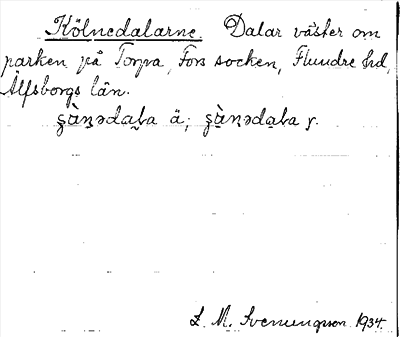 Kölnedalarne. Dalar väster om
parken på Torpa, Fors socken, Flundre hd,
Älfsborgs län.
ä; y.
L. M. Svenungsson 1934.